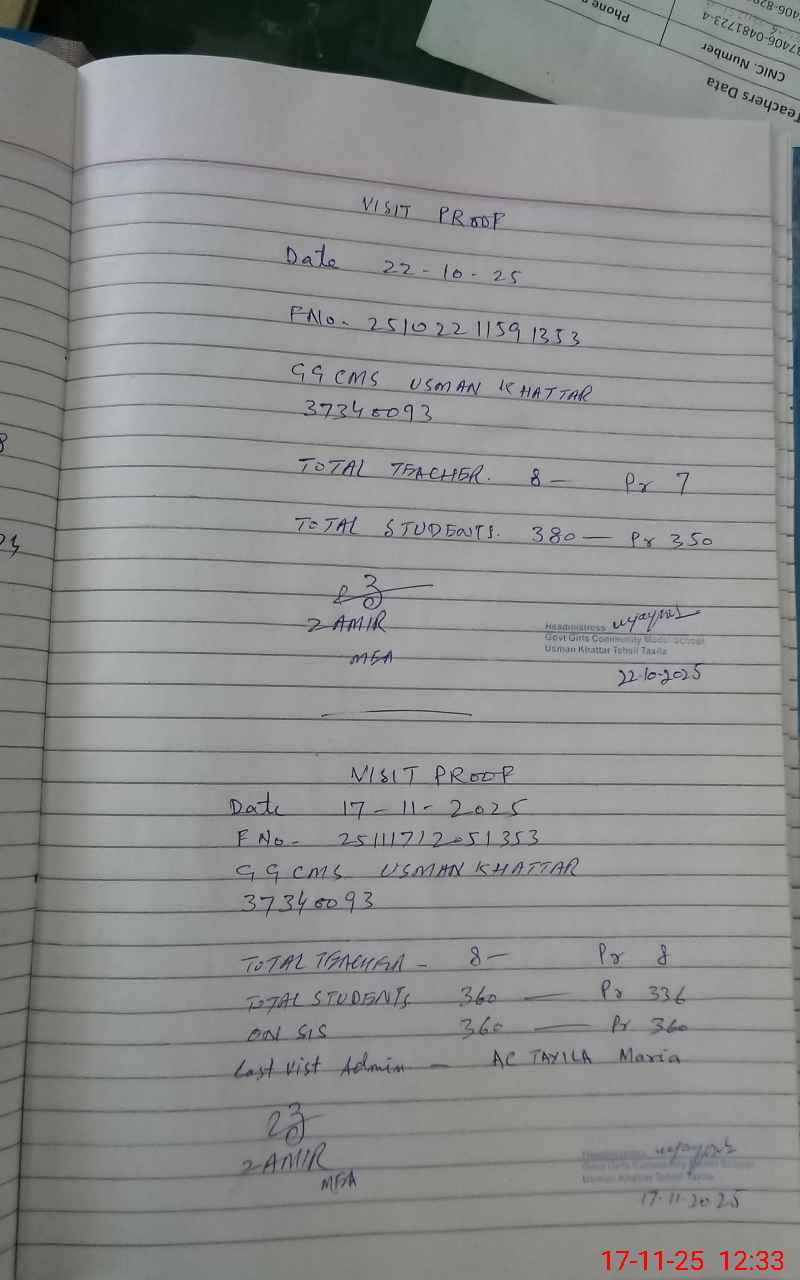 Phone
406-829
37406-0481723-4
CNIC. Number
Teachers Data
VISIT PROOF
Date 22-10-25
FNo. 25102211591353
GGCMS USMAN KHATTAR
37340093
TOTAL TEACHER. 8 — Pr 7
TOTAL STUDENTS. 380 — Pr 350
ZAMIR
MEA
Headmistress
Govt Girls Community Model School
Usman Khattar Tehsil Taxila
22-10-2025
VISIT PROOF
Date 17-11-2025
F No- 25111712051353
GGCMS USMAN KHATTAR
37340093
TOTAL TEACHER - 8 — Pr 8
TOTAL STUDENTS 360 — Pr 336
ON SIS 360 — Pr 360
Last Vist Admin — AC TAXILA Maria
ZAMIR
MEA
Headmistress
Govt Girls Community Model School
Usman Khattar Tehsil Taxila
17-11-2025
17-11-25 12:33